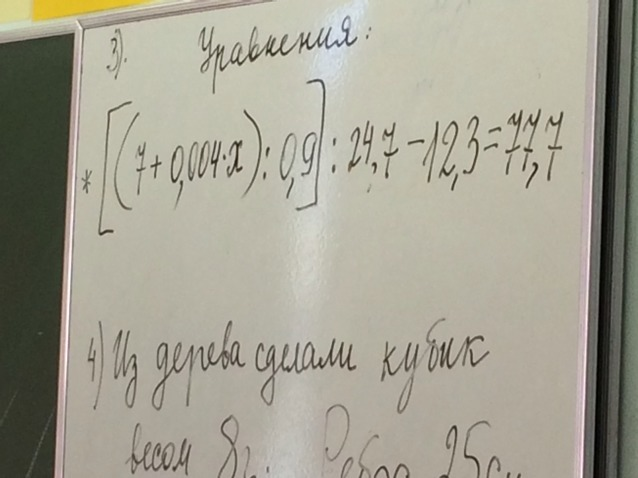 3). Уравнения:
* [(7+0,004·x):0,9]:24,7-12,3=77,7
4) Из дерева сделали кубик
весом 8г. Ребро 25с